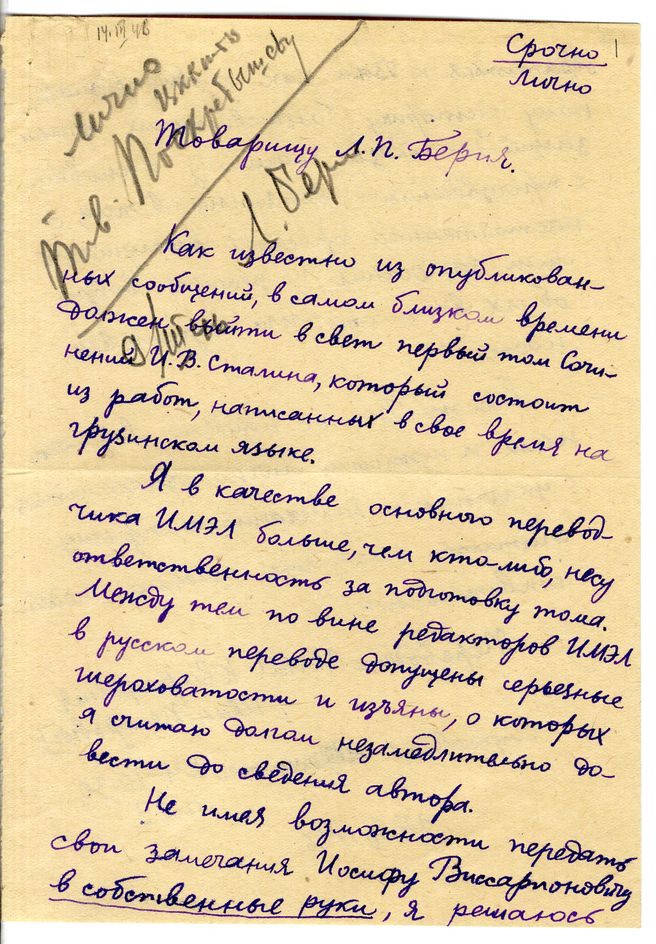 14.III 46
1
Срочно
Лично
лично
тов. Поскребышеву
Л. Берия
Товарищу Л. П. Берия.
Как известно из опубликован-
ных сообщений, в самом близком времени
должен выйти в свет первый том Сочи-
нений И. В. Сталина, который состоит
из работ, написанных в свое время на
грузинском языке.
Я в качестве основного перевод-
чика ИМЭЛ больше, чем кто-либо, несу
ответственность за подготовку тома.
Между тем по вине редакторов ИМЭЛ
в русском переводе допущены серьезные
шероховатости и изъяны, о которых
я считаю долгом незамедлительно до-
вести до сведения автора.
Не имея возможности передать
свои замечания Иосифу Виссарионовичу
в собственные руки, я решаюсь